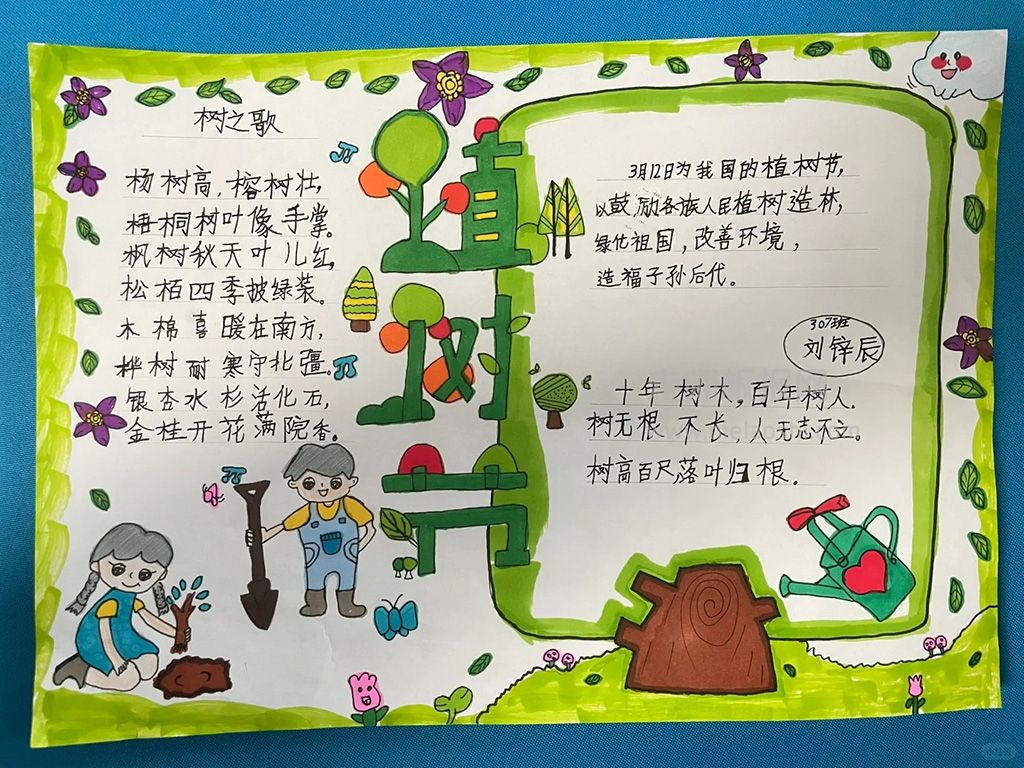 树之歌
杨树高,榕树壮,
梧桐树叶像手掌。
枫树秋天叶儿红,
松柏四季披绿装。
木棉喜暖在南方,
桦树耐寒守北疆。
银杏水杉活化石,
金桂开花满院香。
植
树
节
3月12日为我国的植树节,
以鼓励各族人民植树造林,
绿化祖国,改善环境,
造福子孙后代。
307班
刘锌辰
十年树木,百年树人.
树无根不长,人无志不立。
树高百尺落叶归根.